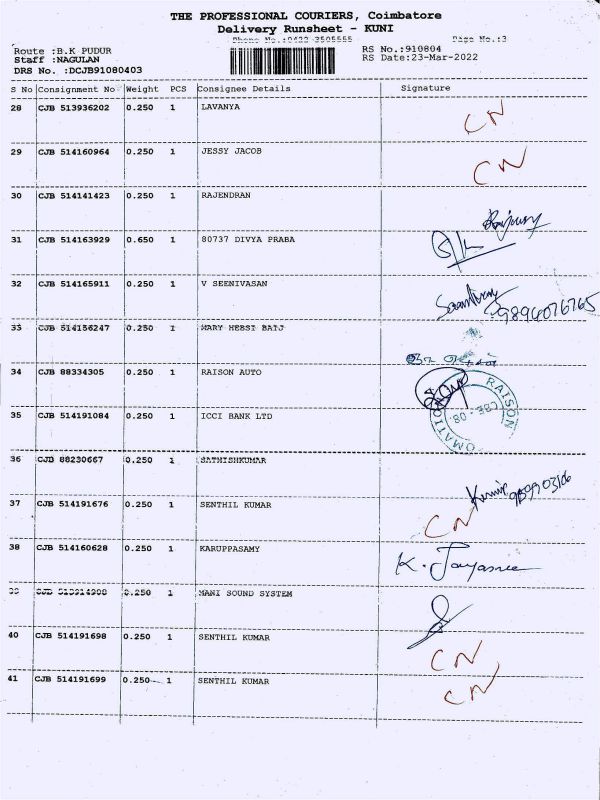 THE PROFESSIONAL COURIERS, Coimbatore
Delivery Runsheet - KUNI
Phone No.:0422 3505555 Page No.:3
Route :B.K PUDUR RS No.:910804
Staff :NAGULAN RS Date:23-Mar-2022
DRS No. :DCJB91080403
S No Consignment No Weight PCS Consignee Details Signature
28 CJB 513936202 0.250 1 LAVANYA CN
29 CJB 514160964 0.250 1 JESSY JACOB CN
30 CJB 514141423 0.250 1 RAJENDRAN
31 CJB 514163929 0.650 1 80737 DIVYA PRABA
32 CJB 514165911 0.250 1 V SEENIVASAN 9894076765
33 CJB 514156247 0.250 1 MARY
34 CJB 88334305 0.250 1 RAISON AUTO
RAISON
CBE - 08.
35 CJB 514191084 0.250 1 ICCI BANK LTD
36 CJB 88230667 0.250 1 SATHISHKUMAR
37 CJB 514191676 0.250 1 SENTHIL KUMAR CN
38 CJB 514160628 0.250 1 KARUPPASAMY K.
39 CJB 0.250 1 MANI SOUND SYSTEM
40 CJB 514191698 0.250 1 SENTHIL KUMAR CN
41 CJB 514191699 0.250 1 SENTHIL KUMAR CN